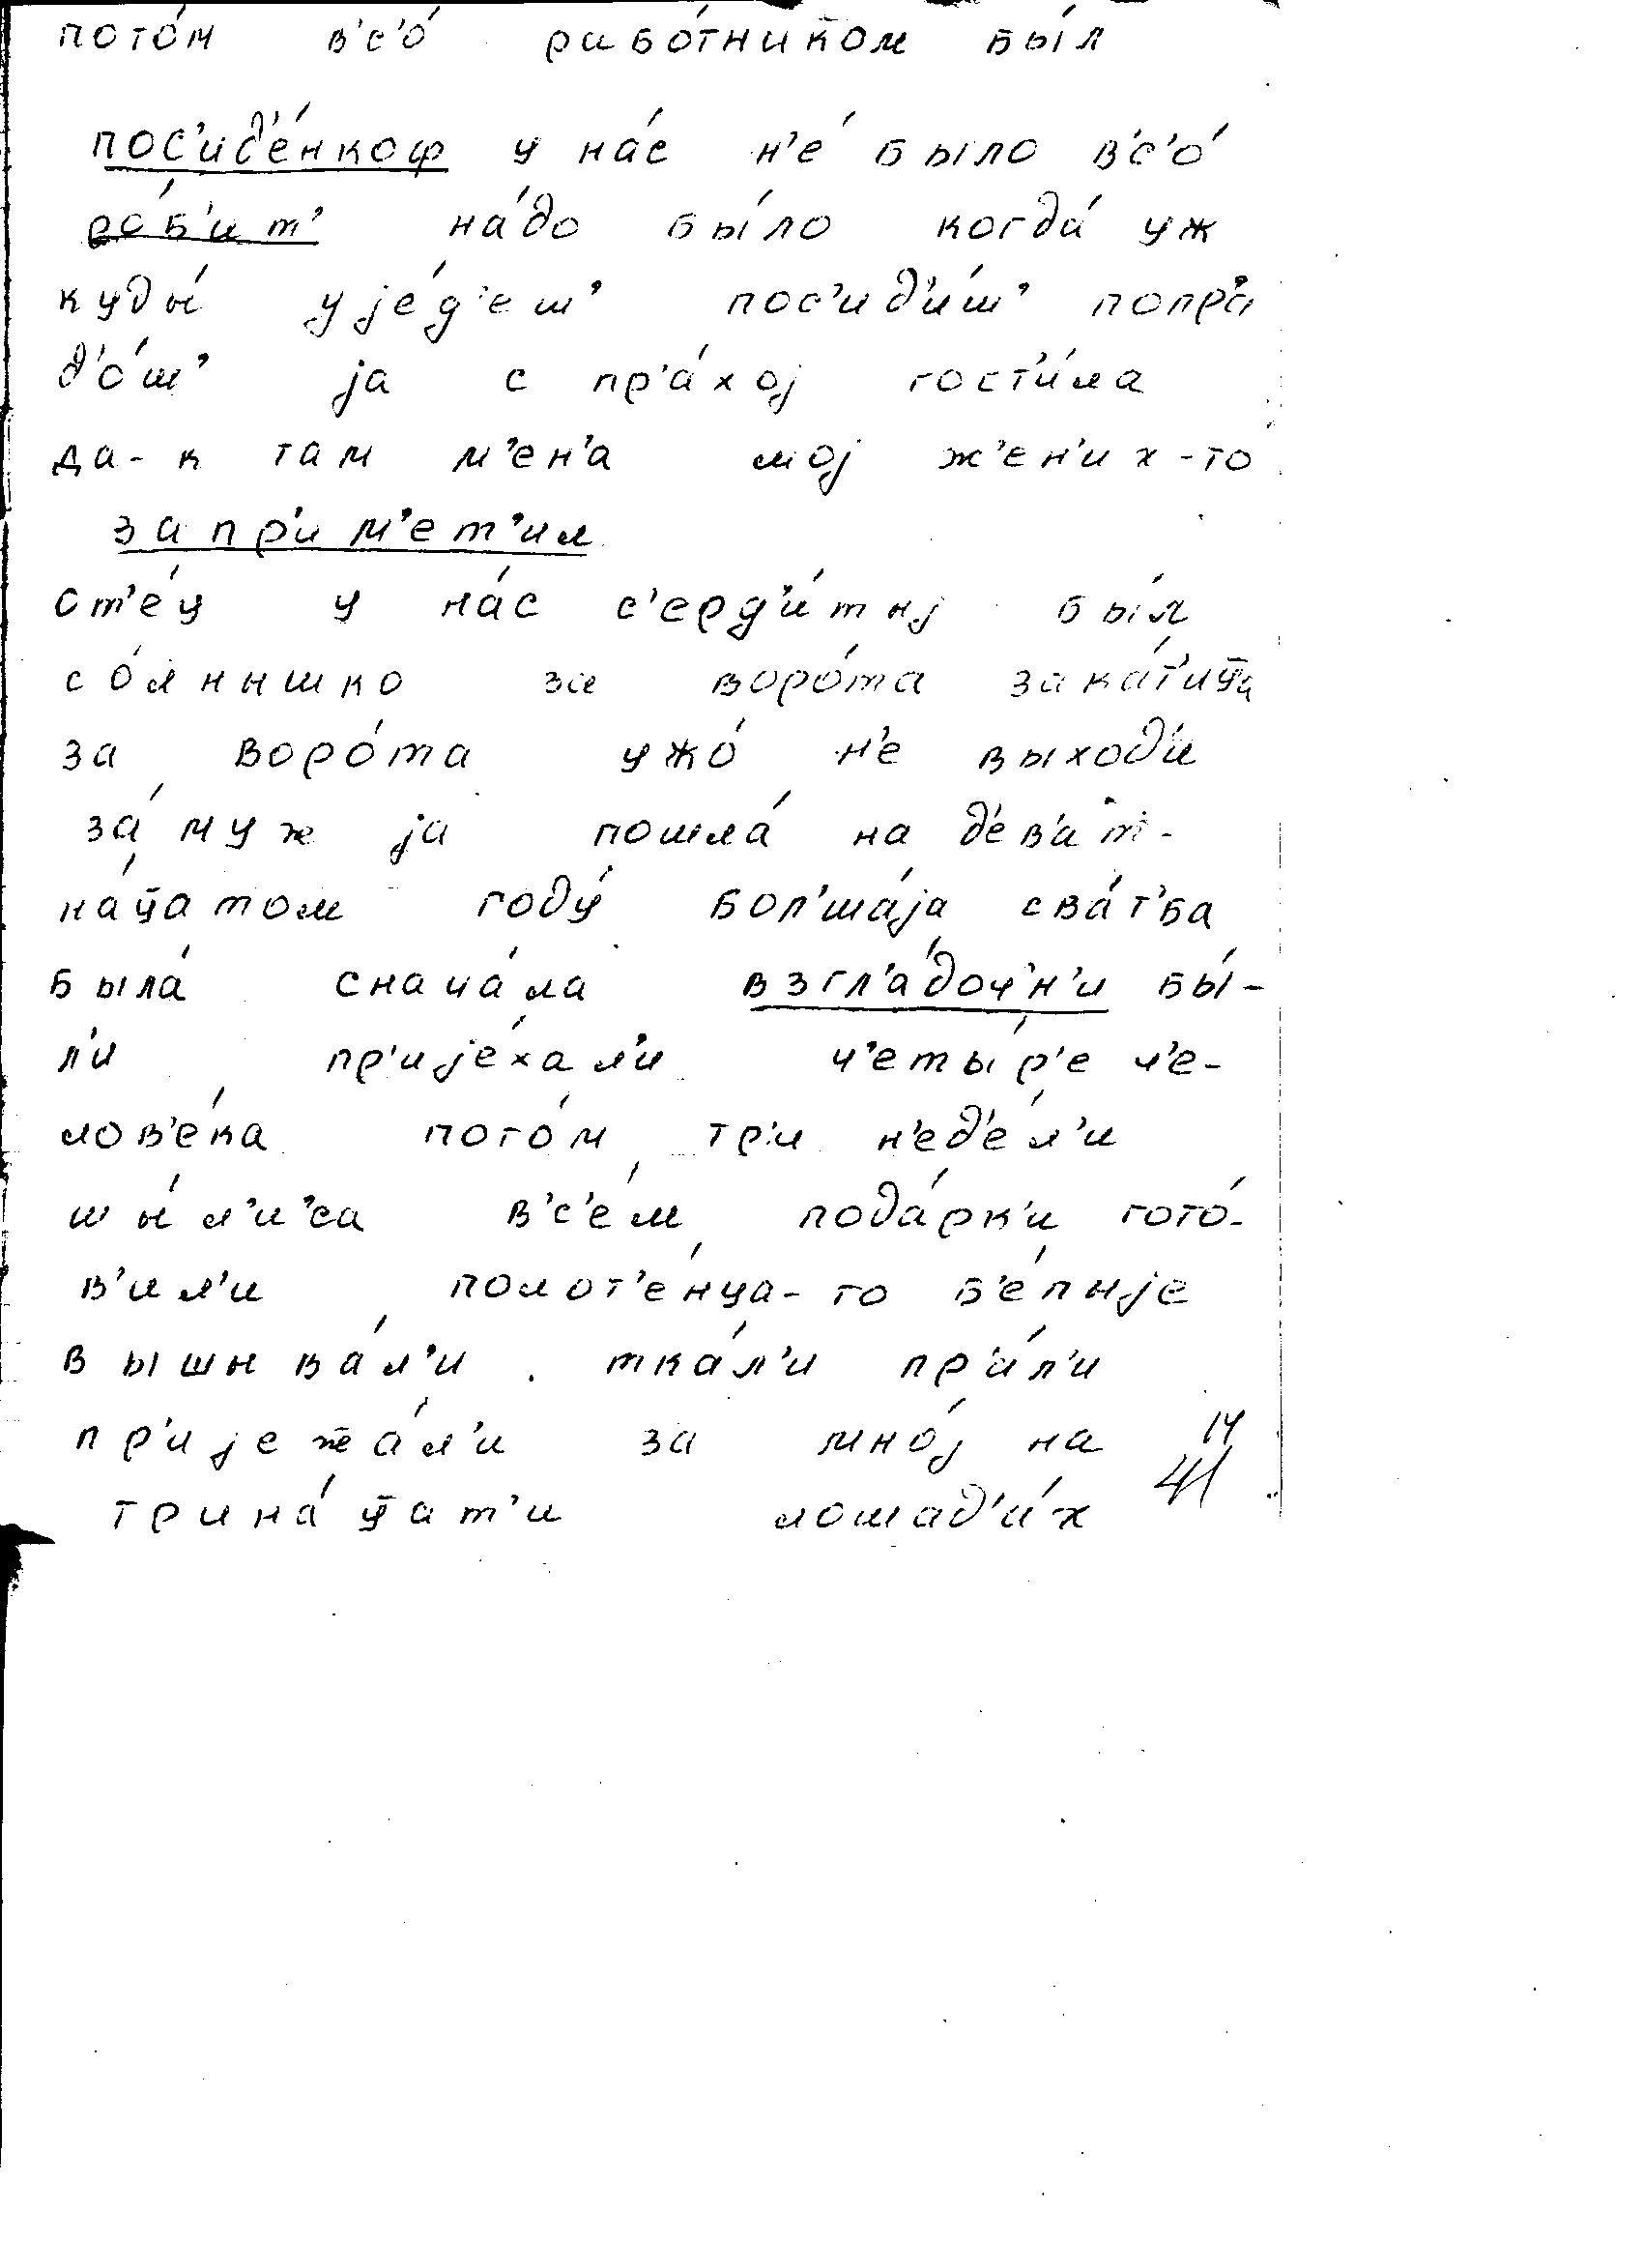 пото́м в'с'о́ рабо́тником бы́л
пос'ид'е́нкоф у на́с н'е́ было в'с'о́
ро́б'ит' на́до бы́ло когда́ уж
куды́ ује́д'еш' пос'ид'и́ш' попр'а
д'о́ш' ја с пр'а́хој гост'и́ла
да-к там м'ен'а мој ж'ен'их-то
запр'им'ет'ил
от'е́ц у на́с с'ерд'и́тыј бы́л
со́лнышко за воро́та зака́т'ица
за воро́та ужо́ н'е выход'и
за́муж ја пошла́ на д'ев'ат-
на́цатом году́ бол'ша́ја сва́т'ба
была́ снача́ла взгл'а́доч'н'и бы́-
л'и пр'ије́хал'и ч'еты́р'е ч'е-
лов'е́ка пото́м тр'и н'ед'е́л'и
шы́л'и'са в'с'е́м пода́рк'и гото́-
в'ил'и полот'е́нца-то б'е́лыје
вышыва́л'и. тка́л'и пр'а́л'и
пр'ијежа́л'и за мно́ј на 14
трина́цат'и лошад'и́х 41